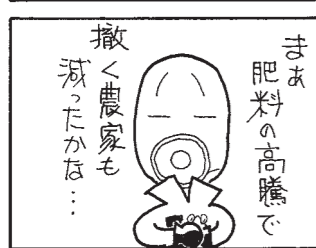 まあ
肥料の高騰で
撒く農家も
減ったかな…